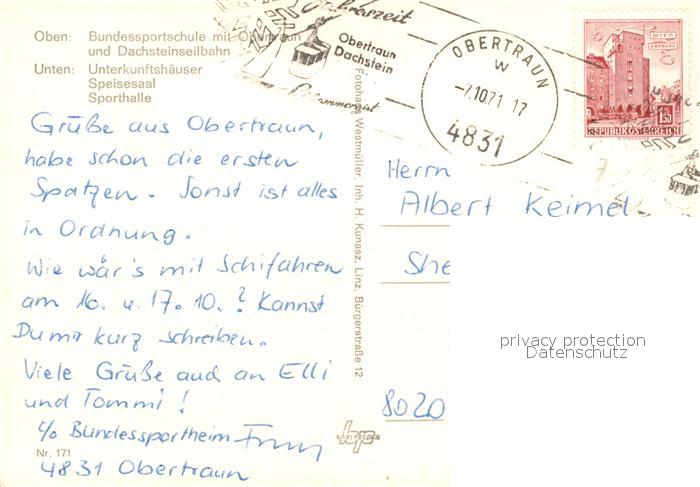 Oben: Bundessportschule mit Obertraun
und Dachsteinseilbahn
Unten: Unterkunftshäuser
Speisesaal
Sporthalle
Obertraun
Dachstein
OBERTRAUN
W
-7.10.71 17
4831
WIEN
ERDBERG
S 1.50
REPUBLIK ÖSTERREICH
7
Grüße aus Obertraun,
habe schon die ersten
Spatzen. Sonst ist alles
in Ordnung.
Wie wär's mit Schifahren
am 16. u. 17. 10.? Kannst
Du mir kurz schreiben.
Viele Grüße auch an Elli
und Tommi!
c/o Bundessportheim
4831 Obertraun
Nr. 171
Fotohaus Westmüller, Inh. H. Kunasz, Linz, Bürgerstraße 12
Herrn
Albert Keimel
She
8020
privacy protection
Datenschutz